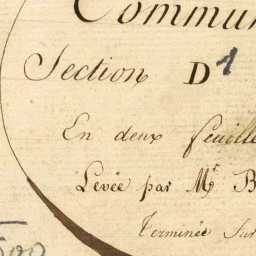 Commun
Section D 1
En deux feuille
Levée par Mr. B
Terminée sur
500